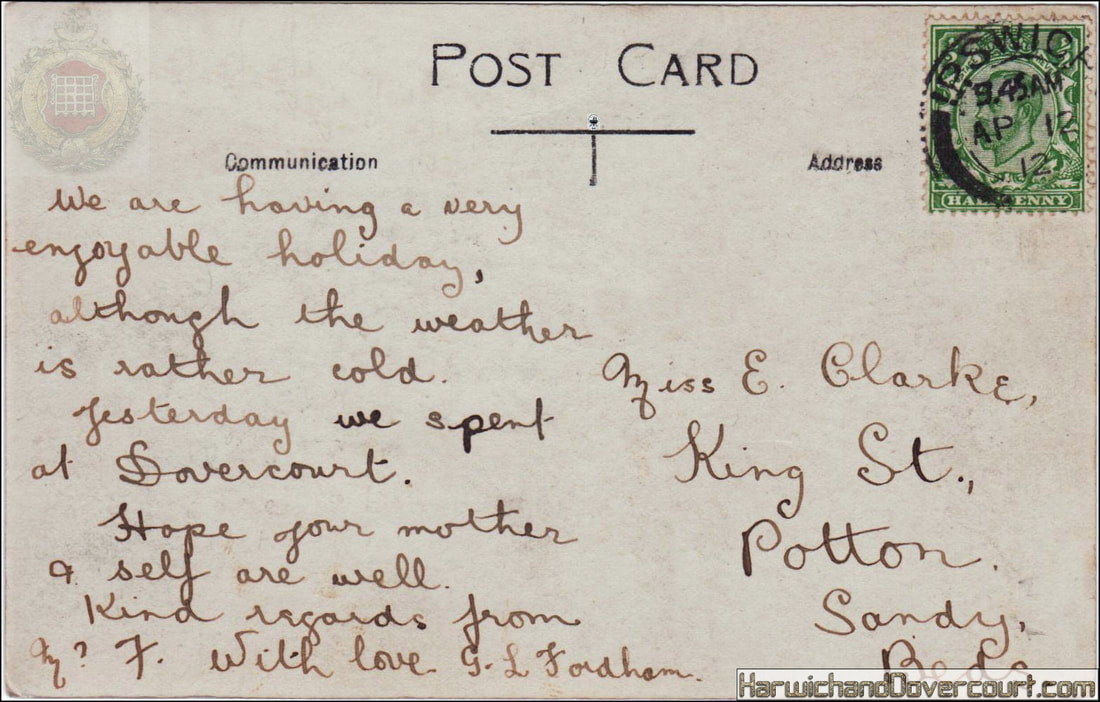 POST CARD
Communication
Address
IPSWICH
9.45AM
AP 12
12
HALFPENNY
We are having a very
enjoyable holiday,
although the weather
is rather cold.
Yesterday we spent
at Dovercourt.
Hope your mother
& self are well.
Kind regards from
F. With love G. L Fordham.
Miss E. Clarke,
King St.,
Potton.
Sandy,
Beds.
HarwichandDovercourt.com